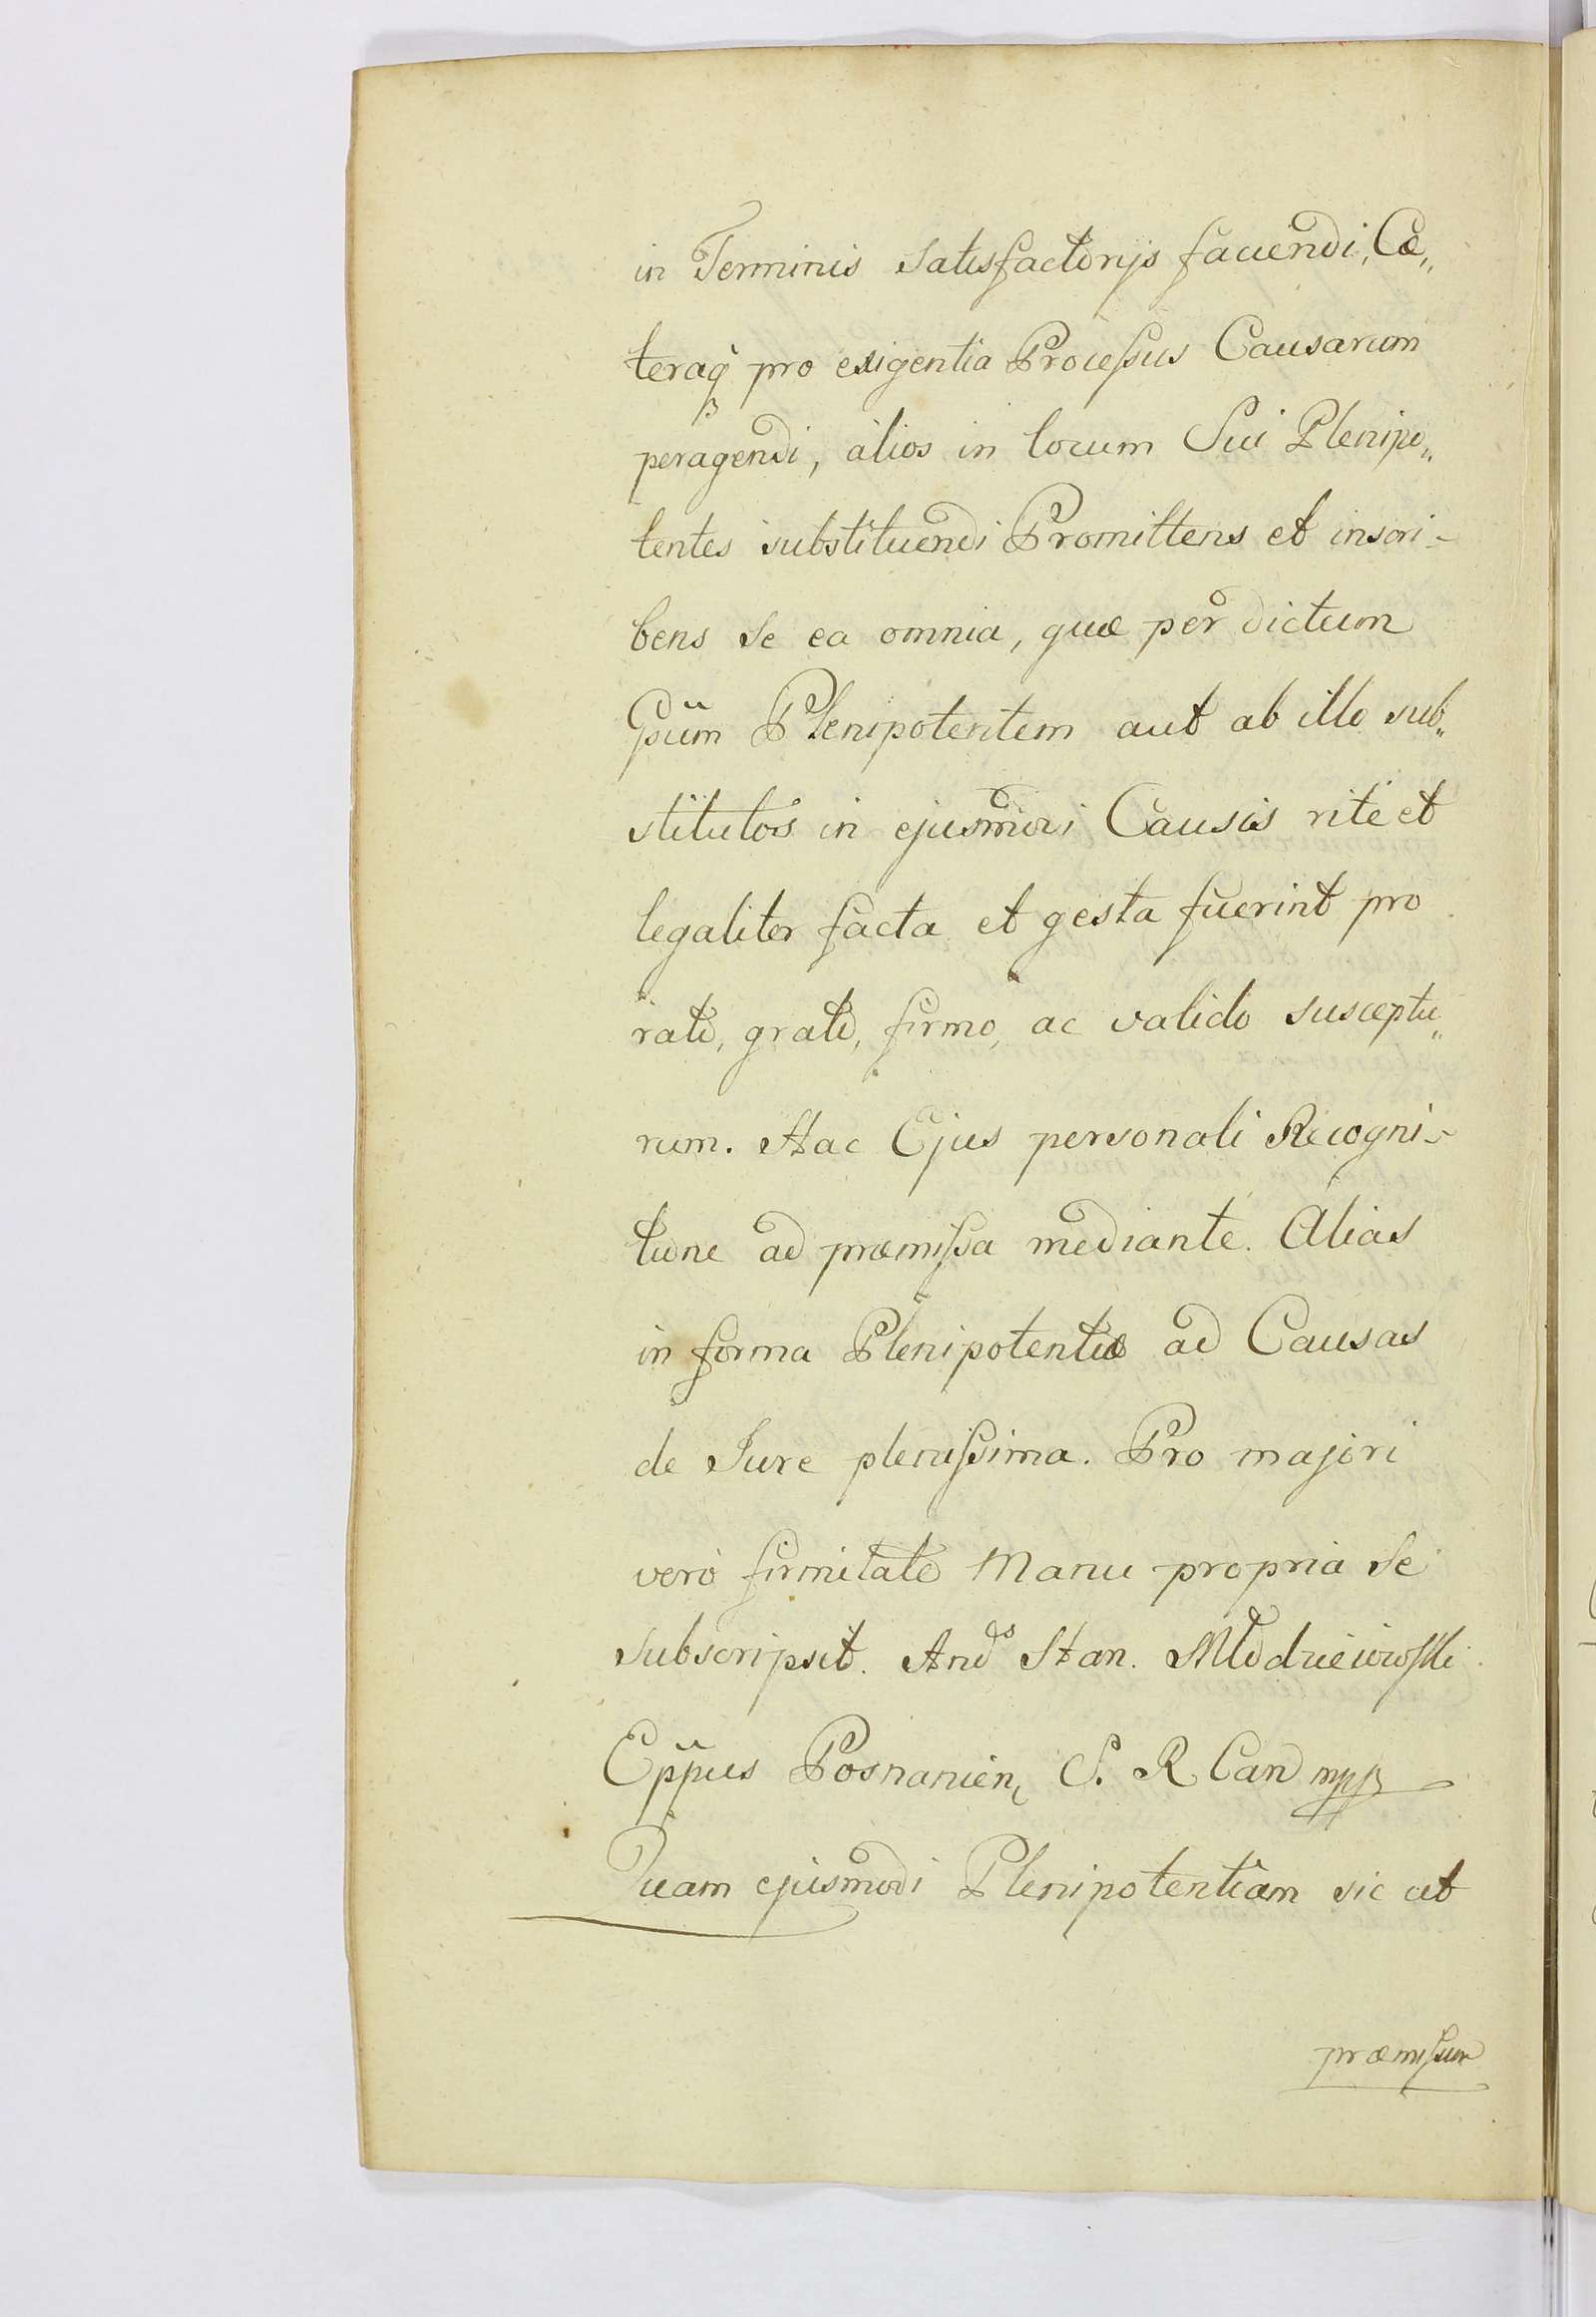 in Terminis Satisfactorijs faciendi, Cæ„
teraq̀ pro exigentia Processus Causarum
peragendi, àlios in locum Sui Plenipo„
tentes substituendi Promittens et inscri-
bens Se ea omnia, quæ per dictum
Gsum Plenipotentem aut ab illo sub„
stitutos in ejusmodi Causis ritè et
legaliter facta et gesta fuerint pro
rato, grato, firmo, ac valido susceptu„
rum. Hac Ejus personali Recogni-
tione ad præmissa mediante. Alias
in forma Plenipotentiæ ad Causas
de Jure plenissima. Pro majori
verò firmitate Manu propria Se
subscripsit. Andˢ Stan. Młodziejowski
Eppus Posnanien, S. R Can mpp
Quam ejusmodi Plenipotentiam sic ut
præmissum